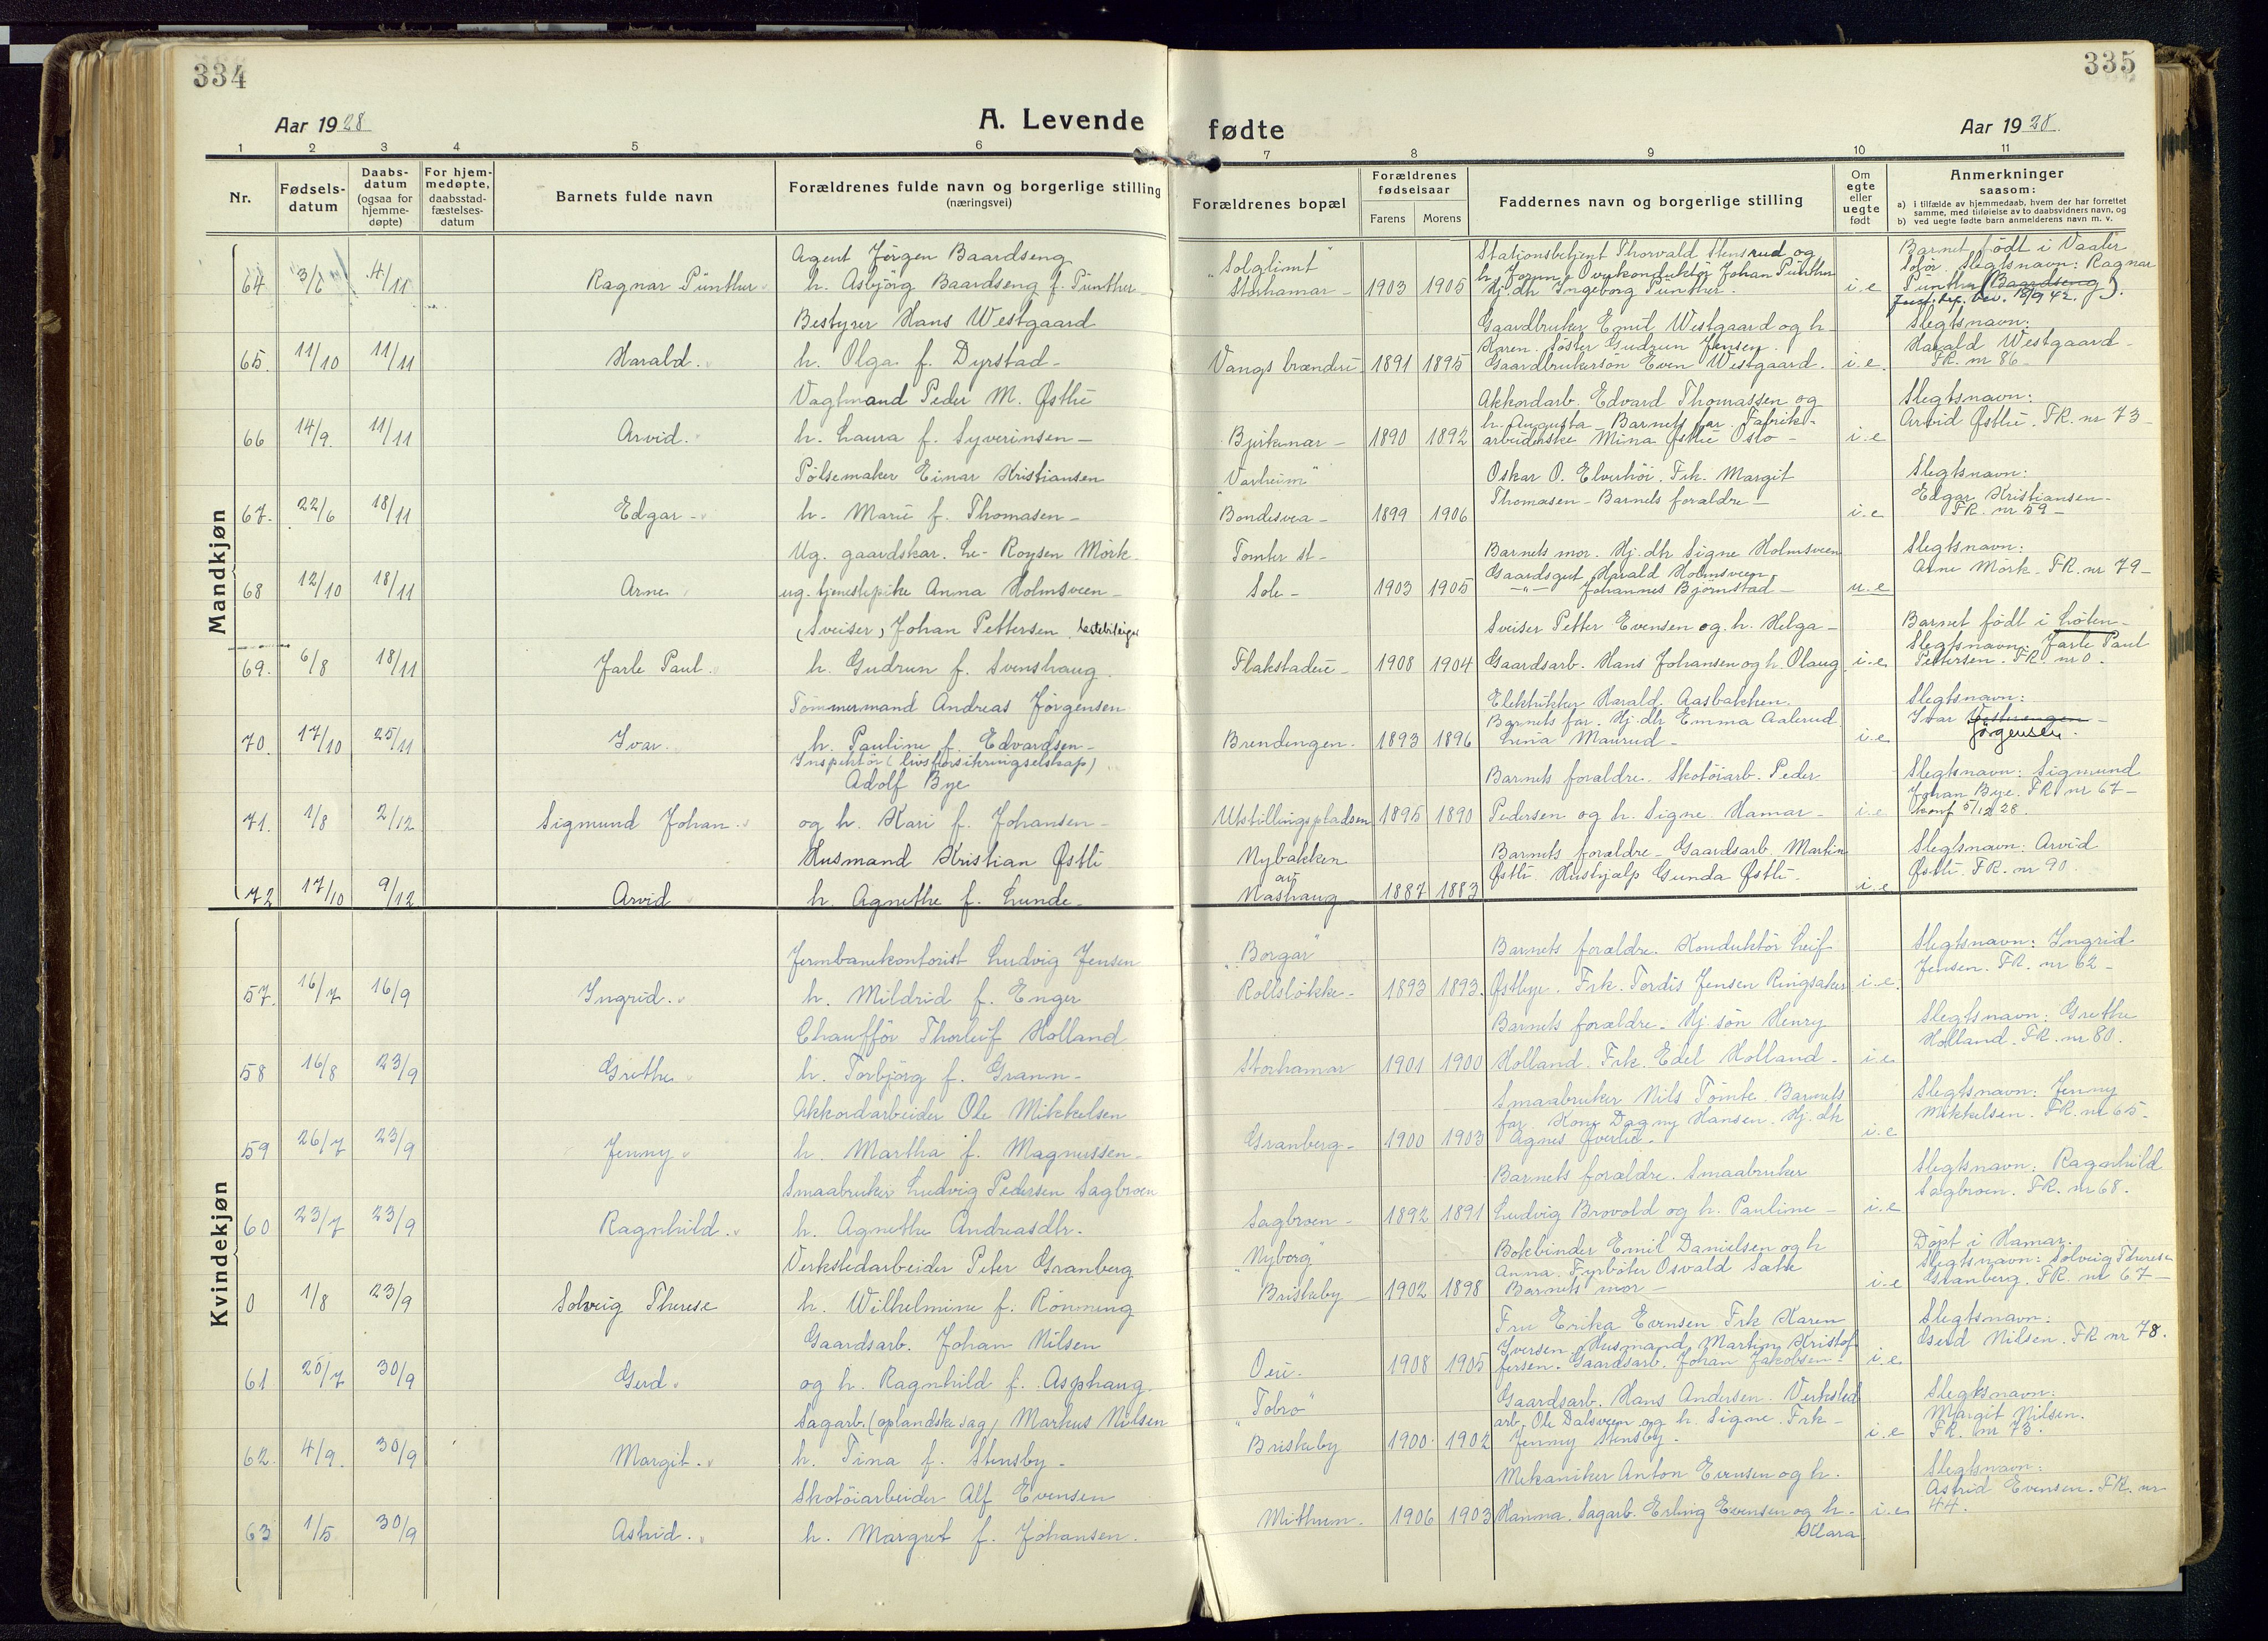 334
335
Aar 1928
A. Levende
fødte
Aar 1928.
1 2 3 4 5 6 7 8 9 10 11
Nr.
Fødsels-
datum
Daabs-
datum
(ogsaa for
hjemme-
døpte)
For hjem-
medøpte,
daabsstad-
fæstelses-
datum
Barnets fulde navn
Forældrenes fulde navn og borgerlige stilling
(næringsvei)
Forældrenes bopæl
Forældrenes
fødselsaar
Farens Morens
Faddernes navn og borgerlige stilling
Om
egte
eller
uegte
født
Anmerkninger
saasom:
a) i tilfælde av hjemmedaab, hvem der har forrettet
samme, med tilføielse av to daabsvidners navn, og
b) ved uegte fødte barn anmelderens navn m. v.
Mandkjøn
64 3/6 4/11 Ragnar Pünther
Agent Jørgen Baardseng
h. Asbjörg Baardseng f. Pünther
"Solglimt"
Storhamar - 1903 1905
Stationsbetjent Thorvald Stensrud og
h. Jorunn. Overkonduktör Johan Pünther
Hj.dtr Ingeborg Pünther.
i.e
Barnet födt i Vaaler
Solör. Slegtsnavn: Ragnar
Pünther (Baardseng).
Just. dep. bev. 18/9 42.
65. 11/10 11/11 Harald.
Bestyrer Hans Westgaard
h. Olga f. Dyrstad -
Vangs brænderi 1891 1895
Gaardbruker Emil Westgaard og h
Karen. Söster Gudrun Jensen.
Gaardbrukersön Even Westgaard.
i.e.
Slegtsnavn:
Harald Westgaard -
FR. nr 86 -
66 14/9. 11/11 Arvid.
Vagtmand Peder M. Østlie
h. Laura f. Syverinsen -
Bjerkemar - 1890 1892
Akkordarb. Edvard Thomassen og
h. Augusta - Barnets far. Fabrik-
arbeiderske Mina Østlie Oslo -
i.e
Slegtsnavn:
Arvid Østlie. FR. nr 73 -
67. 22/6 18/11 Edgar -
Pölsemaker Einar Kristiansen
h. Marie f. Thomasen -
"Varheim"
Bondesvea - 1899 1906
Oskar O. Elverhöi. Frk. Margit
Thomasen - Barnets forældre -
i.e
Slegtsnavn:
Edgar Kristiansen -
FR. nr 59 -
68 12/10 18/11 Arne
Ug. gaardskar. Le-Roysen Mörk
ug. tjenestepike Anna Holmsveen -
Tomter st -
Sole - 1903 1905
Barnets mor. Hj.dtr Signe Holmsveen
Gaardsgut Harald Holmsveen
-"- Johannes Bjørnstad -
u.e
Slegtsnavn:
Arne Mörk - FR. nr 79 -
69. 6/8 18/11 Jarle Paul
(Sveiser) Johan Pettersen.
h. Gudrun f. Svenshaug.
Flakstadeie - 1908 1904
Sveiser Petter Evensen og h. Helga -
Gaardsarb. Hans Johansen og h. Olaug
i.e
Barnet født i Löten -
Slegtsnavn: Jarle Paul
Pettersen. FR. nr 0.
70. 17/10 25/11 Ivar
Tömmermand Andreas Jörgensen
h. Pauline f. Edvardsen -
Brendengen. 1893 1896
Elektrikker Harald Aasbakken.
Barnets far. Hj.dtr Emma Aalerud
Lina Maurud -
i.e
Slegtsnavn:
Ivar Vesterengen -
Jørgensen.
71. 1/8 2/12 Sigmund Johan
Inspektör (livsforsikringselskap)
Adolf Bye
og h. Kari f. Johansen -
Utstillingspladsen 1895 1890
Barnets forældre. Skotöiarb. Peder
Pedersen og h. Signe. Hamar -
i.e
Slegtsnavn: Sigmund
Johan Bye. FR. nr 67 -
konf 5/12 28.
72 17/10 9/12 Arvid
Husmand Kristian Østli
h. Agnethe f. Lunde -
Nybakken
av
Nashaug 1887 1883
Barnets forældre - Gaardsarb. Martin
Østli. Hushjælp Gunda Østli.
i.e
Slegtsnavn: Arvid
Østli. FR. nr 90.
Kvindekjøn
57. 16/7 16/9 Ingrid.
Jernbanekontorist Ludvig Jensen
h. Mildrid f. Enger
"Borgar"
Rollsløkke - 1893 1893.
Barnets forældre. Konduktör Leif
Østbye. Frk. Tordis Jensen Ringsaker
i.e.
Slegtsnavn: Ingrid
Jensen. FR. nr 62 -
58 16/8 23/9 Grethe
Chauffør Thorleif Holland
h. Torbjörg f. Grann -
Storhamar 1901 1900
Barnets forældre - Hj. sön Henry
Holland. Frk. Edel Holland -
i.e
Slegtsnavn: Grethe
Holland. FR. nr 80.
59 26/7 23/9 Jenny
Akkordarbeider Ole Mikkelsen
h. Martha f. Magnussen -
Granberg - 1900 1903
Smaabruker Nils Tömte. Barnets
far. Kone Dagny Hansen. Hj.dtr
Agnes Överlie -
i.e
Slegtsnavn: Jenny
Mikkelsen. FR. nr 65 -
60 23/7 23/9 Ragnhild.
Smaabruker Ludvig Pedersen Sagbroen
h. Agnethe Andreasdtr.
Sagbroen - 1892 1891
Barnets forældre. Smaabruker
Ludvig Brovold og h. Pauline -
i.e
Slegtsnavn: Ragnhild
Sagbroen. FR. nr 68.
0 1/8 23/9 Solveig Therese
Verkstedarbeider Peter Granberg
h. Wilhelmine f. Rönning
"Nyborg"
Briskeby - 1902 1898
Bokbinder Emil Danielsen og h
Anna. Fyrböter Osvald Sæthe
Barnets mor -
i.e
Döpt i Hamar.
Slegtsnavn: Solveig Therese
Granberg. FR. nr 67 -
61 20/7 30/9 Gerd.
Gaardsarb. Johan Nilsen
og h. Ragnhild f. Asphaug.
Oeie. 1908 1905
Fru Erika Evensen Frk Karen
Iversen. Husmand Martin Kristof-
fersen. Gaardsarb. Johan Jakobsen -
i.e
Slegtsnavn:
Gerd Nilsen. FR nr 78.
62. 4/9. 30/9 Margit.
Sagarb. (oplandske sag) Markus Nilsen
h. Tina f. Stensby -
"Tobro"
Briskeby 1900. 1902
Gaardsarb. Hans Andersen. Verksted
arb. Ole Dalsveen og h. Signe. Frk -
Jenny Stensby.
i.e
Slegtsnavn:
Margit Nilsen.
FR. nr 73.
63 1/5 30/9 Astrid.
Skotöiarbeider Alf Evensen
h. Margret f. Johansen.
Mithun. 1906 1903
Mekaniker Anton Evensen og h.
Hanna. Sagarb. Erling Evensen og h -
Klara
i.e
Slegtsnavn:
Astrid Evensen. FR. nr
44.